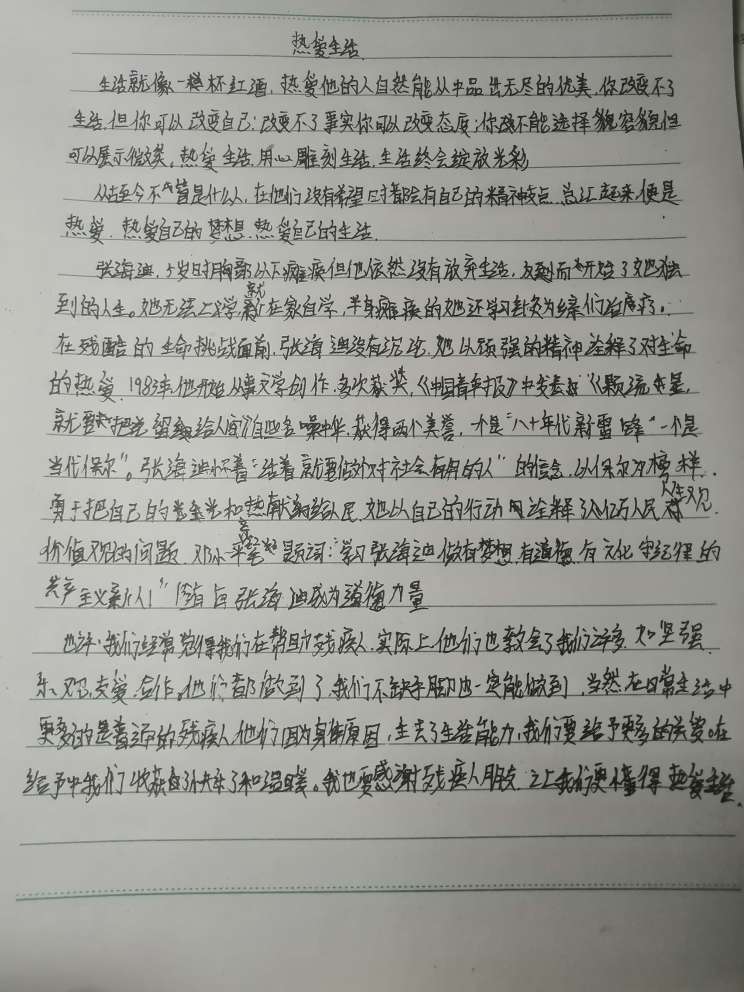 热爱生活
生活就像一杯红酒，热爱他的人自然能从中品出无尽的优美，你改变不了
生活，但你可以改变自己；改变不了事实你可以改变态度；你不能选择容貌但
可以展示微笑。热爱生活，用心雕刻生活，生活终会绽放光彩
从古至今不管是什么人，在他们没有希望时都会有自己的精神支点，总汇起来便是
热爱，热爱自己的梦想，热爱自己的生活
张海迪，5岁时胸部以下瘫痪但他依然没有放弃生活，反到而开始了她独
到的人生。她无法上学就在家自学，半身瘫痪的她还学习针灸为乡亲们治疗。
在残酷的生命挑战面前，张海迪没有沉沦，她以顽强的精神诠释了对生命
的热爱，1983年他开始从事文学创作，多次获奖，《中国青年报》中发表《是颗流星，
就要把光留给人间》自此名噪中华，获得两个美誉，一个是“八十年代新雷锋”一个是
当代保尔”。张海迪怀着“活着就要做个对社会有用的人”的信念，以保尔为榜样，
勇于把自己的光和热献给人民，她以自己的行动诠释了亿万人民对人生观
价值观的问题，邓小平亲笔题词：“学习张海迪做有梦想，有道德，有文化守纪律的
共产主义新人！”使张海迪成为道德力量
也许，我们经常觉得我们在帮助残疾人，实际上他们也教会了我们许多，如坚强，
乐观，友爱，合作。他们都做到了，我们不缺手脚也一定能做到，当然在日常生活中
更多的是普通的残疾人，他们因为身体原因，失去了生活能力，我们要给予更多的关爱。在
给予中我们收获了快乐了和温暖。我也要感谢残疾人朋友，让我们更懂得热爱生活。